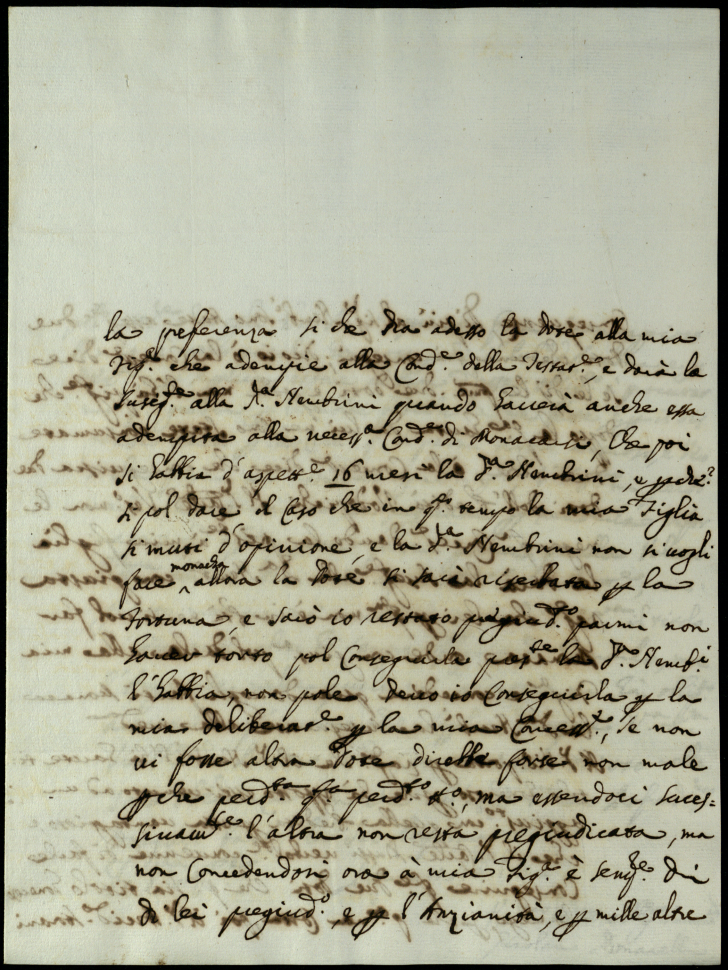 la preferenza si che dia adesso la dose alla mia
fig.ª che adempie alla Cond.e della Testat.e, e darà la
suseg.te alla d.ª Nembrini quando haverà anche essa
adempito alla necess.ª Cond.e di Monacarsi, che poi
si habbia d'aspett.e 16 mesi la d.ª Nembrini, e perche?
si pol dare il caso che in q.to tempo la mia figlia
si muti d'opinione, e la d.ª Nembrini non si vogli
fare monacha, allora la dose si sarà riserbata per la
fortuna, e sarò io restato pregiud.to parmi non
haver torto pol conseguirla la d.ª Nemb.i
l'habbia, non pole devo io conseguirla per la
mia deliberat.e per la mia Concess.e, se non
vi fosse altra dose direbbe forse non male
perche perd.ta q.ta perd.to, ma essendoci suces-
sivam.te l'altra non resta pregiudicata, ma
non concedendosi ora à mia fig.ª è senz.e di
di lei pregiud.o, e per l'Anzianità, e per mille altre